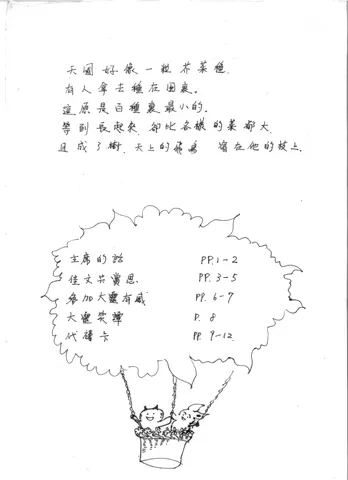 天國好像一粒芥菜種.
有人拿去種在田裏.
這原是百種裏最小的.
等到長起來,卻比各樣的菜都大.
且成了樹,天上的飛鳥 宿在他的枝上.
主席的話 PP.1-2
佳文共賞恩. PP.3-5
參加大靈有感 PP.6-7
大靈笑譚 P.8
代禱卡 PP.9-12.